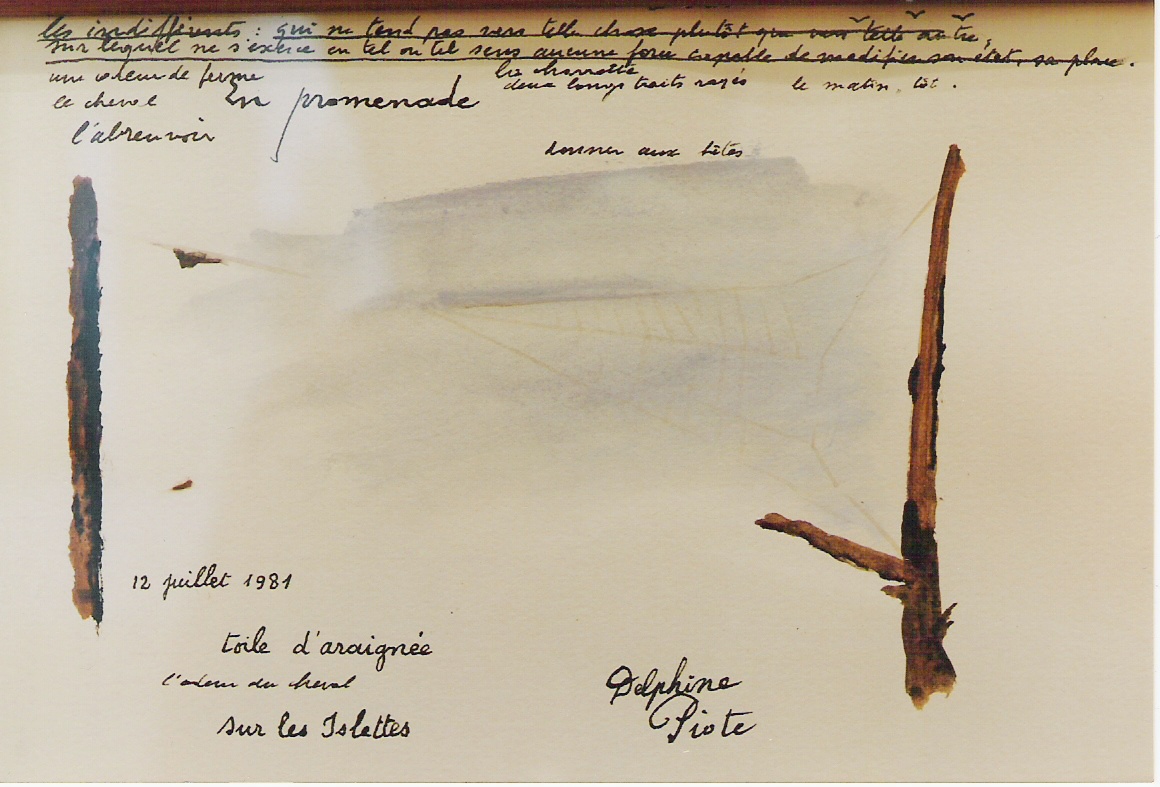 les indifférents : qui ne tend pas vers telle chose plutôt que vers telle autre,
sur lequel ne s'exerce en tel ou tel sens aucune force capable de modifier son état, sa place.
une odeur de ferme
la charrette
deux longs traits rayés
le matin, tôt.
le cheval
En promenade
l'abreuvoir
donner aux bêtes
12 juillet 1981
toile d'araignée
l'odeur du cheval
sur les Islettes
Delphine
Piote